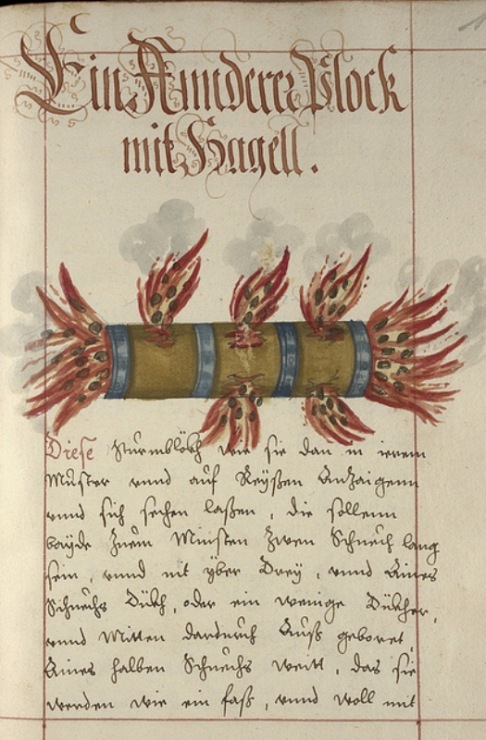 Ein Runderer Plock
mit Hagell.
Diese Sturmblöckh wie sie dan in irem
Muster vnnd auf Reyßen Anzaigenn
vnnd sich sechen laßen, die sollenn
bayde Zuem Minsten Zwen Schuech lang
sein, vnnd nit yber Drey, vnnd Aines
Schuechs Dickh, oder ein wenige Dickher,
vnnd Mitten dardurch Auß geboret
Aines halben Schuechs weitt, das sie
werden wie ein faß, vnnd woll mit